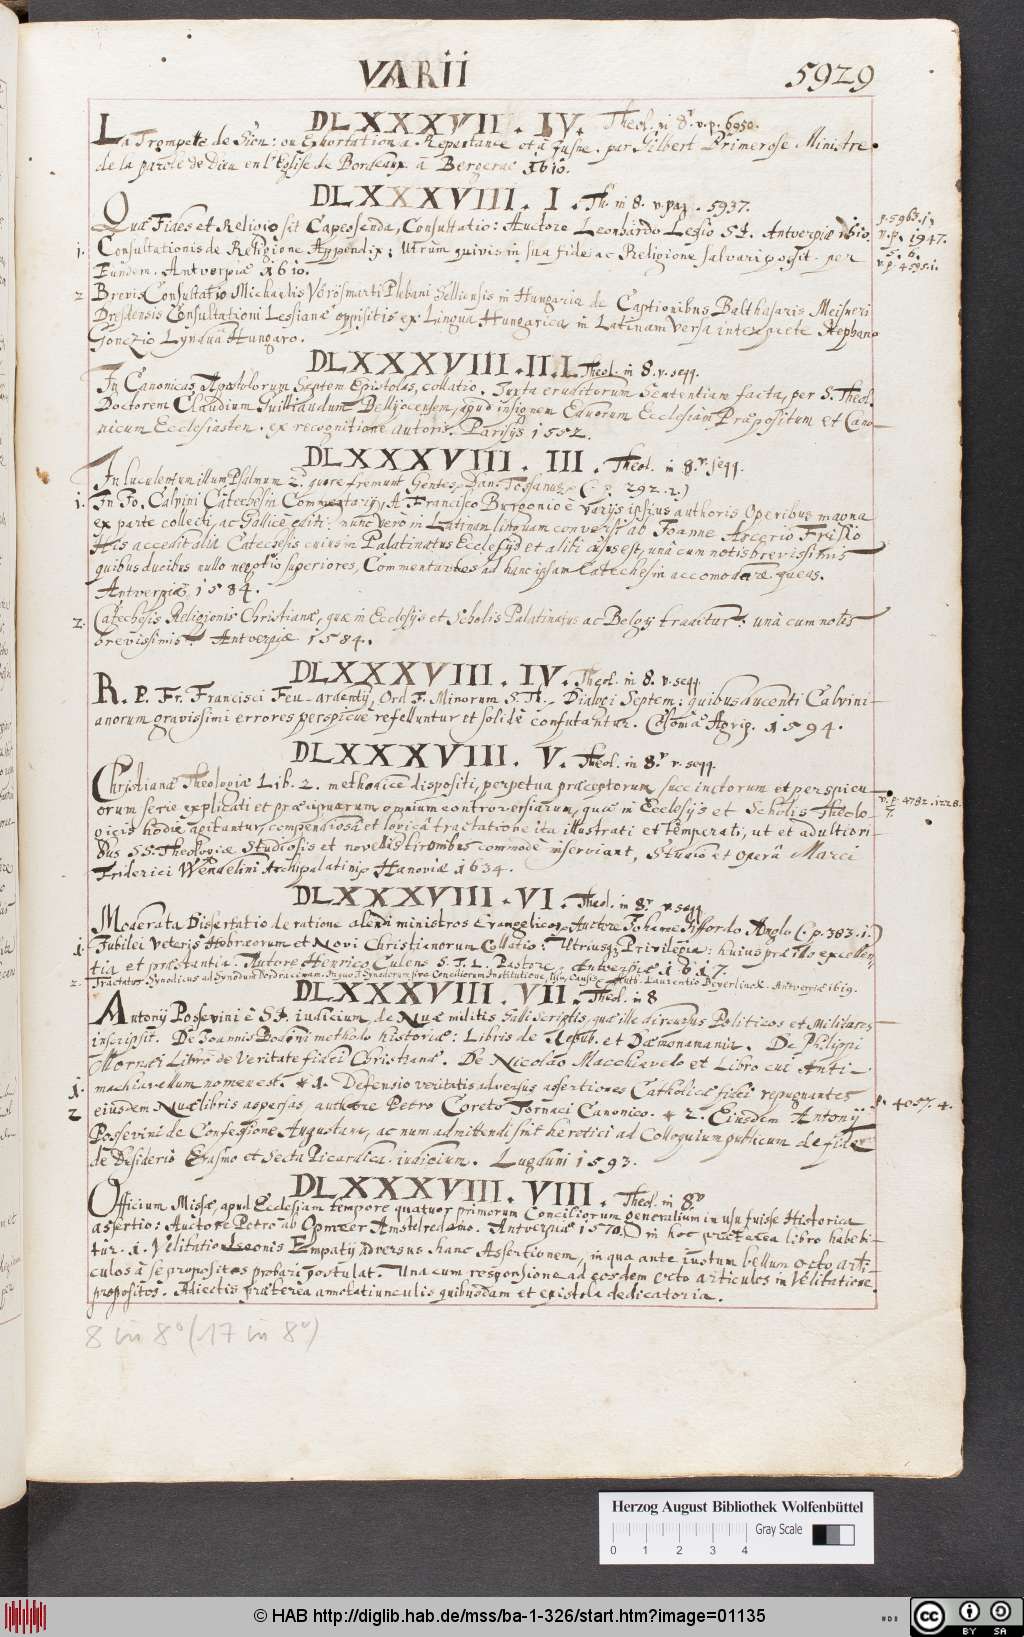 VARII
5929
DLXXXVII. IV. Theol. in 8. v. p. 6950.
La Trompete de Sion: ou Exhortation a Repentance et à Jusne. par Gilbert Primerose Ministre
de la parole de Dieu en l'Eglise de Bordeaux. à Bergerac 1610.
DLXXXVIII. I. Th. in 8. v. pag. 5937.
Quæ Fides et Religio sit Capessenda, Consultatio: Auctore Leonhardo Lessio S.J. Antverpiæ 1610.
p. 5963. 1.
v. p. 1947.
5. 6.
v. p. 4595. 1.
1. Consultationis de Religione Appendix; Utrum quivis in sua fide ac Religione salvari possit. per
Eundem. Antverpiæ 1610.
2 Brevis Consultatio Michaelis Vörösmarti Plebani Selliensis in Hungaria de Captionibus Balthasaris Meisneri
Dresdensis Consultationi Lessianæ oppositis ex Lingua Hungarica in Latinam versa interprete Stephano
Gonezio Lyndua Hungaro.
DLXXXVIII. II. I. Theol. in 8. v. seqq.
In Canonicas Apostolorum Septem Epistolas, collatio. Juxta eruditorum Sententiam facta, per S. Theol.
Doctorem Claudium Guilliaudum Bellijocensem, apud insignem Eduorum Ecclesiam Præpositum et Cano-
nicum Ecclesiasten. ex recognitione autoris. Parisijs 1552.
DLXXXVIII. III. Theol. in 8. v. seqq.
In luculentum illum Psalmum 2. quare fremunt Gentes, Dan. Tossanus (. p. 292. 2.)
1. In Jo. Calvini Catechesin Commentarij, A Francisco Burgonio è varijs ipsius authoris Operibus magna
ex parte collecti, ac Gallice editi: nunc vero in Latinam linguam conversi ab Joanne Arcerio Frisio
His accedit alia Catechesis cuius in Palatinatus Ecclesijs et alibi usus est, unà cum notis brevissimis
quibus ducibus nullo negotio superiores, Commentarios ad hanc ipsam Catechesin accomodare queas.
Antverpiæ 1584.
2. Catechesis Religionis Christianæ, quæ in Ecclesijs et Scholis Palatinatus ac Belgij traditur: unà cum notis
brevissimis. Antverpiæ 1584.
DLXXXVIII. IV. Theol. in 8. v. seqq.
R. P. Fr. Francisci Feu-ardentij, Ord. F. Minorum S. Th. Dialogi Septem: quibus ducenti Calvini-
anorum gravissimi errores perspicue refelluntur et solidè confutantur. Coloniæ Agrip. 1594.
DLXXXVIII. V. Theol. in 8. v. seqq.
Christianæ Theologiæ Lib. 2. methodice dispositi, perpetua præceptorum, succinctorum et perspicu-
v. p. 4782. 1228.
7.
orum serie explicati et præcipuarum omnium controversiarum, quæ in Ecclesijs et Scholis Theolo-
gicis hodie agitantur, compendiosâ et logicâ tractatione ita illustrati et temperati, ut et adultiori-
bus SS. Theologiæ Studiosis et novellis tironibus commode inserviant, Studio et Operâ Marci
Friderici Wendelini Archipalatini. Hanoviæ 1634.
DLXXXVIII. VI. Theol. in 8. v. seqq.
Moderata Dissertatio de ratione alendi ministros Evangelicos, Auctore Johanne Giffordo Anglo (. p. 383. 1.)
1. Jubilei Veteris Hebræorum et Novi Christianorum Collatio: Utriusq. Privilegia: huius præ illo excellen-
tia et præstantia. Autore Henrico Culens S. T. L. Pastore. Antverpiæ 1617.
2. Tractatus Synodicus ad Synodum Dordracenam. In quo de Synodorum sive Conciliorum Institutione, Usu, Causis Auth. Laurentio Beyerlinck. Antverpiæ 1619.
DLXXXVIII. VII. Theol. in 8
Antonij Possevini è S.J. iudicium, de Nuæ militis Galli Scriptis, quæ ille discursus Politicos et Militares
inscripsit. De Joannis Bodini methodo historiæ: Libris de Repub. et Dæmonomania. De Philippi
Mornæi Libro de Veritate fidei Christianæ. De Nicolao Macchiavelo et Libro cui Anti-
1. machiavellum nomen est. * 1. Defensio veritatis adversus assertiones Catholicæ fidei repugnantes
p. 4057. 4.
2 eiusdem Nuæ libris aspersas, authore Petro Coreto Tornaci Canonico. * 2. Eiusdem Antonij
Possevini de Confessione Augustana, ac num admittendi sint heretici ad Colloquium publicum de fide
de Desiderio Erasmo et Secta Picardica iudicium. Lugduni 1593.
DLXXXVIII. VIII. Theol. in 8.
Officium Missæ, apud Ecclesiam tempore quatuor primorum Conciliorum generalium in usu fuisse Historica
assertio: Auctore Petro ab Opmeer Amstelredamo. Antverpiæ 1570.) in hoc præterea libro habebi-
tur. 1. Velitatio Leonis Empatij adversus hanc Assertionem, in qua ante iustum bellum octo arti-
culos à se propositos probari postulat. Una cum responsione ad eosdem octo articulos in Velitatione
propositos. Adiectis præterea annotatiunculis quibusdam et epistola dedicatoria.
8 in 8° (17 in 8°)
Herzog August Bibliothek Wolfenbüttel
Gray Scale
0 1 2 3 4
© HAB http://diglib.hab.de/mss/ba-1-326/start.htm?image=01135
cc BY SA